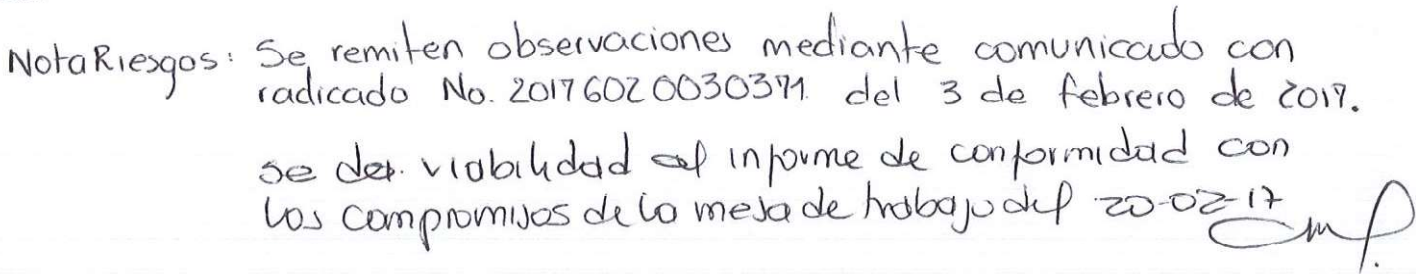 Nota Riesgos: Se remiten observaciones mediante comunicado con
radicado No. 20176020030371 del 3 de febrero de 2017.
se da viabilidad al informe de conformidad con
los compromisos de la mesa de trabajo del 20-02-17